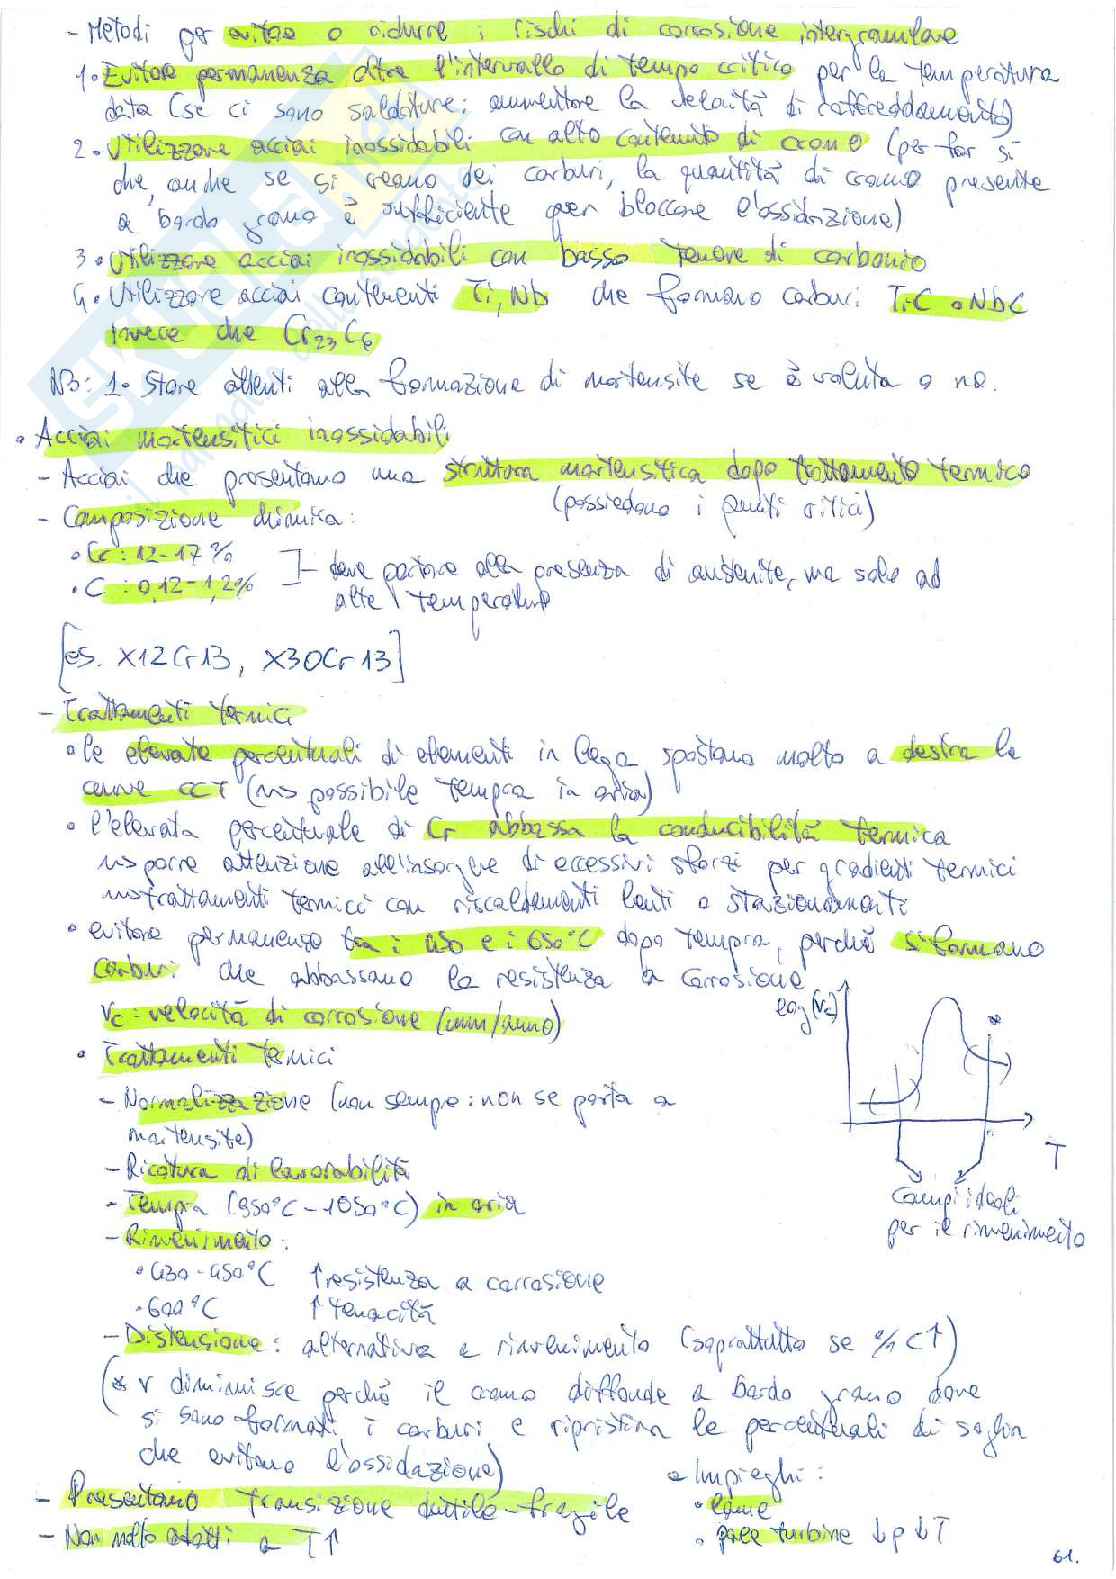 - Metodi per evitare o ridurre i rischi di corrosione intergranulare
1. Evitare permanenza oltre l'intervallo di tempo critico per la temperatura
data (se ci sono saldature: aumentare la velocità di raffreddamento)
2. Utilizzare acciai inossidabili con alto contenuto di cromo (per far sì
che, anche se si creano dei carburi, la quantità di cromo presente
a bordo grano è sufficiente per bloccare l'ossidazione)
3. Utilizzare acciai inossidabili con basso tenore di carbonio
4. Utilizzare acciai contenenti Ti, Nb che formano carburi TiC o NbC
invece che Cr23C6
NB: 1. Stare attenti alla formazione di martensite se è voluta o no.
• Acciai martensitici inossidabili
- Acciai che presentano una struttura martensitica dopo trattamento termico
(possiedono i punti critici)
- Composizione chimica:
• Cr: 12-17%
• C: 0,12-1,2%
]- deve portare alla presenza di austenite, ma solo ad
alte temperature
[es. X12Cr13, X30Cr13]
- Trattamenti termici
• le elevate percentuali di elementi in lega spostano molto a destra le
curve CCT (→ possibile tempra in aria)
• l'elevata percentuale di Cr abbassa la conducibilità termica
→ porre attenzione all'insorgere di eccessivi sforzi per gradienti termici
→ trattamenti termici con riscaldamenti lenti o stazionamenti
• evitare permanenza tra i 450 e i 650°C dopo tempra, perché si formano
carburi che abbassano la resistenza a corrosione
Vc: velocità di corrosione (mm/anno)
log(Vc)
*
T
Campi ideali
per il rinvenimento
• Trattamenti termici
- Normalizzazione (non sempre: non se porta a
martensite)
- Ricottura di lavorabilità
- Tempra (950°C - 1050°C) in aria
- Rinvenimento:
• 430-450°C ↑ resistenza a corrosione
• 600°C ↑ tenacità
- Distensione: alternativa a rinvenimento (soprattutto se % C↑)
(* v diminuisce perché il cromo diffonde a bordo grano dove
si sono formati i carburi e ripristina le percentuali di soglia
che evitano l'ossidazione)
- Presentano transizione duttile-fragile
- Non molto adatti a T↑
• Impieghi:
• lame
• pale turbine ↓p ↓T
61.